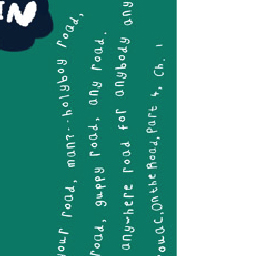 IN
your road, man?--holyboy road,
road, guppy road, any road.
anywhere road for anybody any
ouac, On the Road, Part 4, Ch. 1